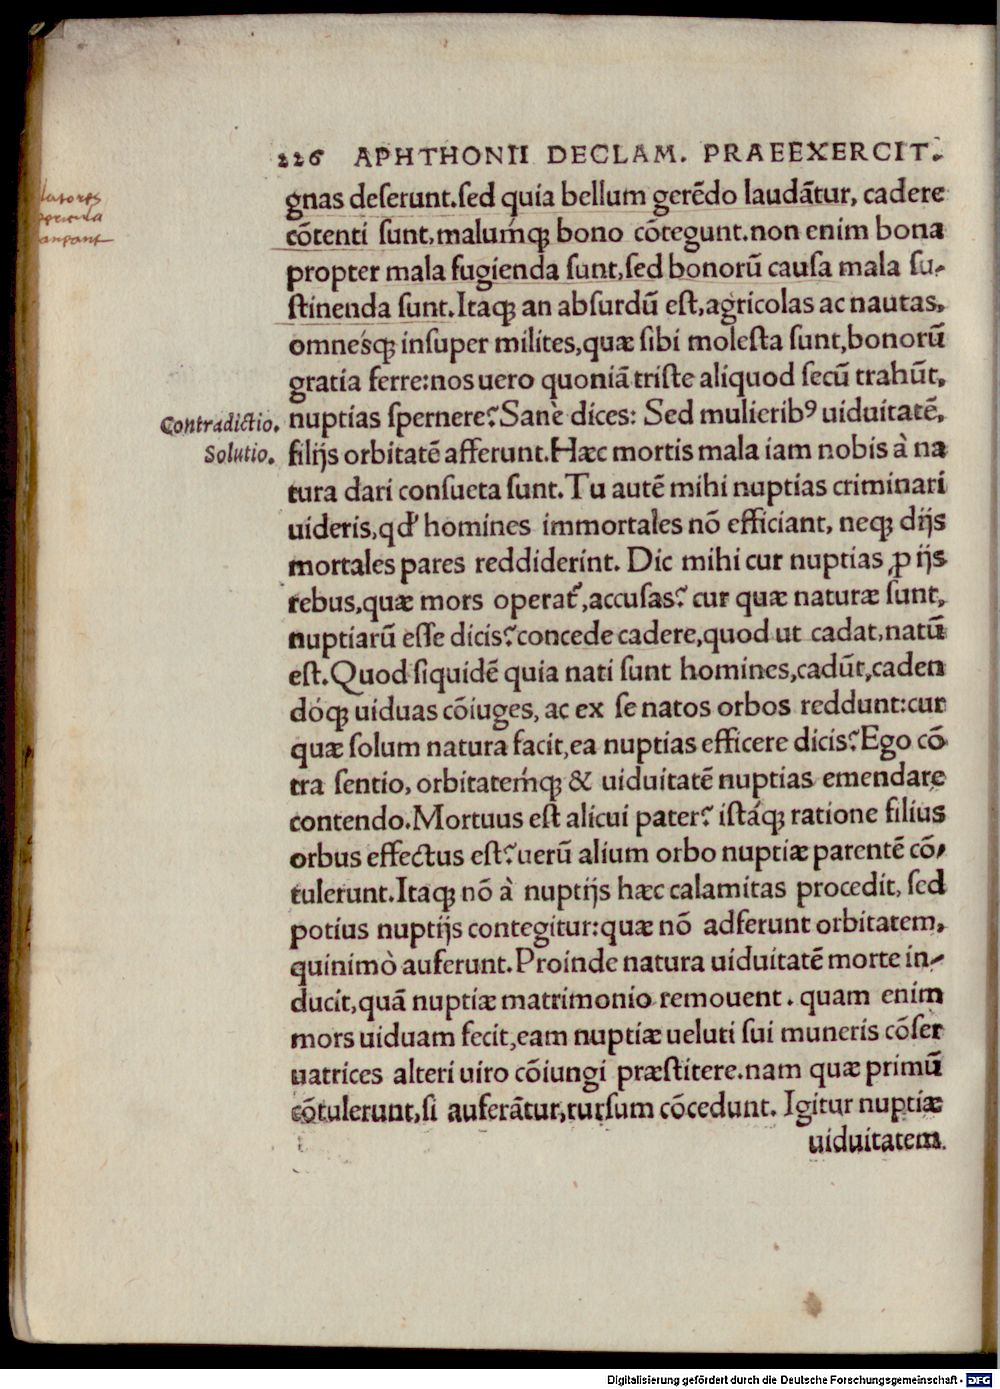 226 APHTHONII DECLAM. PRAEEXERCIT.
gnas deſerunt.ſed quia bellum gerẽdo laudãtur, cadere
cõtenti ſunt,malumq́ꝫ bono cõtegunt.non enim bona
propter mala fugienda ſunt,ſed bonorũ cauſa mala ſu-
ſtinenda ſunt.Itaqꝫ an abſurdũ eſt,agricolas ac nautas,
omnesq́ꝫ inſuper milites,quæ ſibi moleſta ſunt,bonorũ
gratia ferre:nos uero quoniã triſte aliquod ſecũ trahũt,
nuptias ſpernere?Sanè dices: Sed mulieribꝰ uiduitatẽ,
Contradictio.
filijs orbitatẽ afferunt.Hæc mortis mala iam nobis à na
Solutio.
tura dari conſueta ſunt.Tu autẽ mihi nuptias criminari
uideris,qd' homines immortales nõ efficiant, neqꝫ dijs
mortales pares reddiderint. Dic mihi cur nuptias ꝓ ijs
rebus,quæ mors operat᷑,accuſas? cur quæ naturæ ſunt,
nuptiarũ eſſe dicis?concede cadere,quod ut cadat,natũ
eſt.Quod ſiquidẽ quia nati ſunt homines,cadũt,caden
dóqꝫ uiduas cõiuges, ac ex ſe natos orbos reddunt:cur
quæ ſolum natura facit,ea nuptias efficere dicis?Ego cõ
tra ſentio, orbitatemq́ꝫ & uiduitatẽ nuptias emendare
contendo.Mortuus eſt alicui pater? iſtáqꝫ ratione filius
orbus effectus eſt?uerũ alium orbo nuptiæ parentẽ cõ-
tulerunt.Itaqꝫ nõ à nuptijs hæc calamitas procedit, ſed
potius nuptijs contegitur:quæ nõ adferunt orbitatem,
quinimò auferunt.Proinde natura uiduitatẽ morte in-
ducit,quã nuptiæ matrimonio remouent. quam enim
mors uiduam fecit,eam nuptiæ ueluti ſui muneris cõſer
uatrices alteri uiro cõiungi præſtitere.nam quæ primũ
cõtulerunt,ſi auferãtur,rurſum cõcedunt. Igitur nuptiæ
uiduitatem.
Digitalisierung gefördert durch die Deutsche Forschungsgemeinschaft - DFG